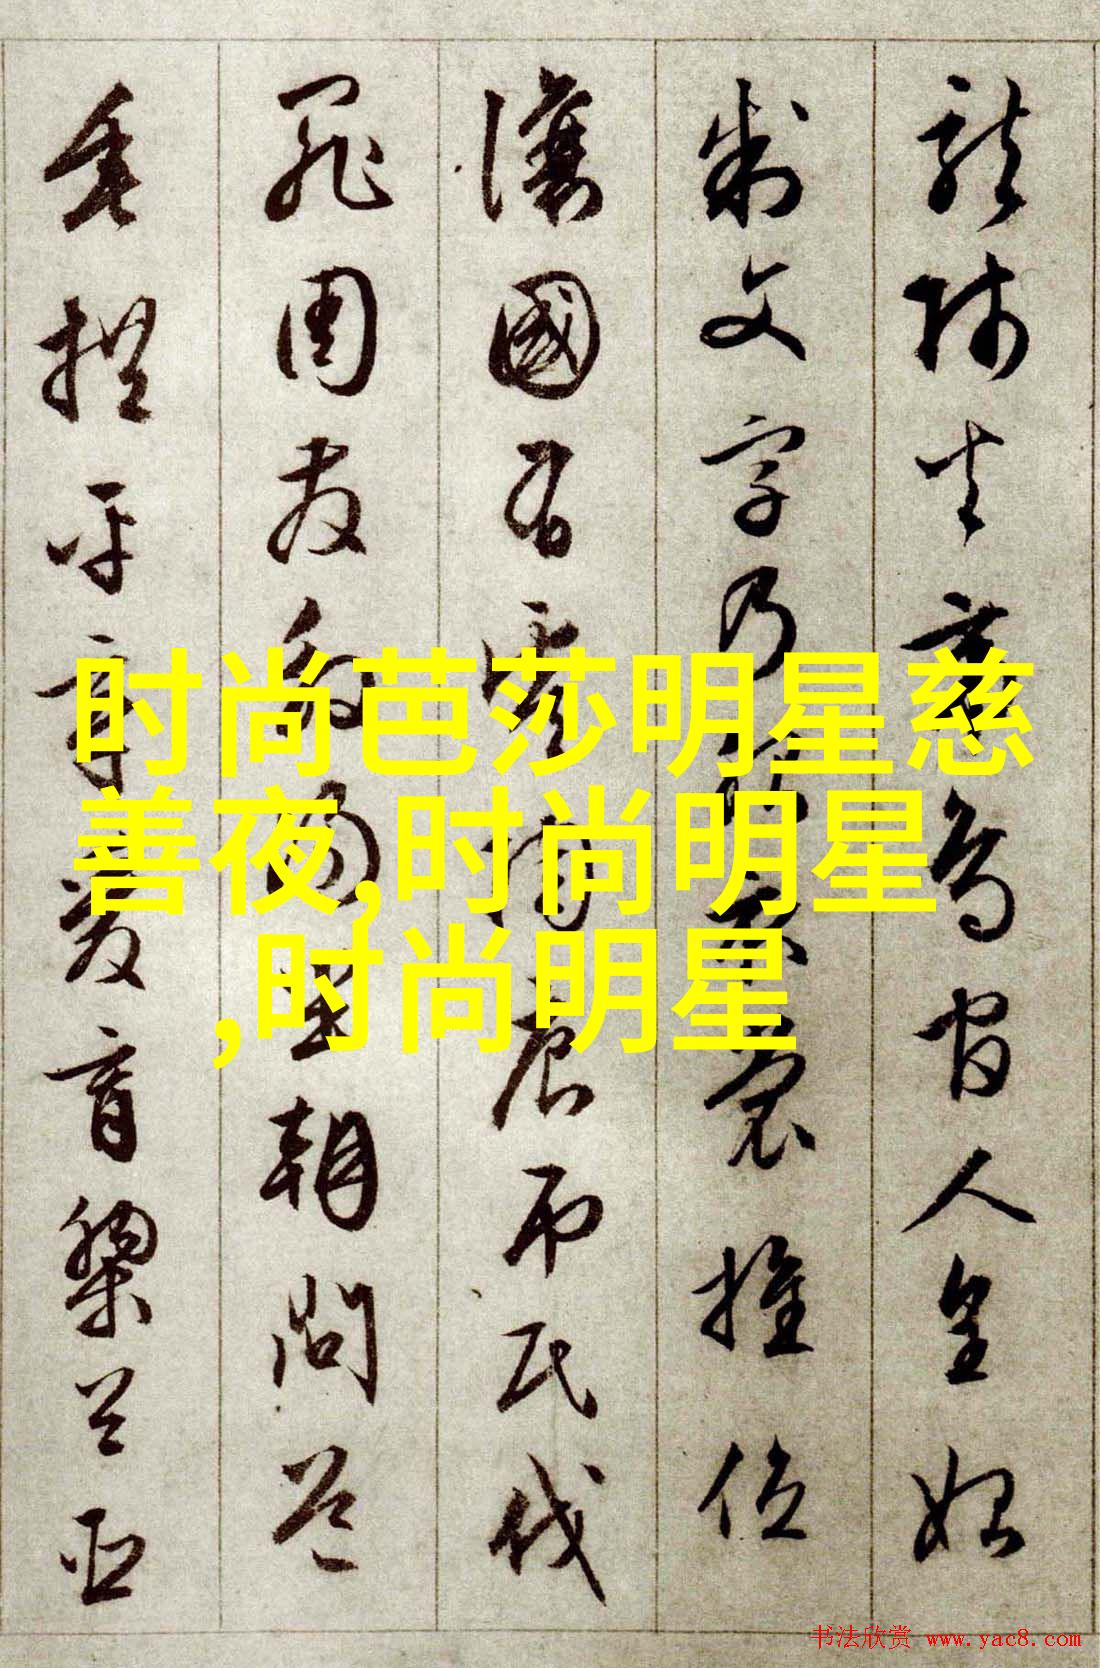 龍師火帝鳥官人皇始
制文字乃服衣裳推位
讓國有虞陶唐吊民伐
罪周發殷湯坐朝問道
垂拱平章愛育黎首臣
时尚芭莎明星慈
善夜,时尚明星
,时尚明星
书法欣赏 www.yac8.com